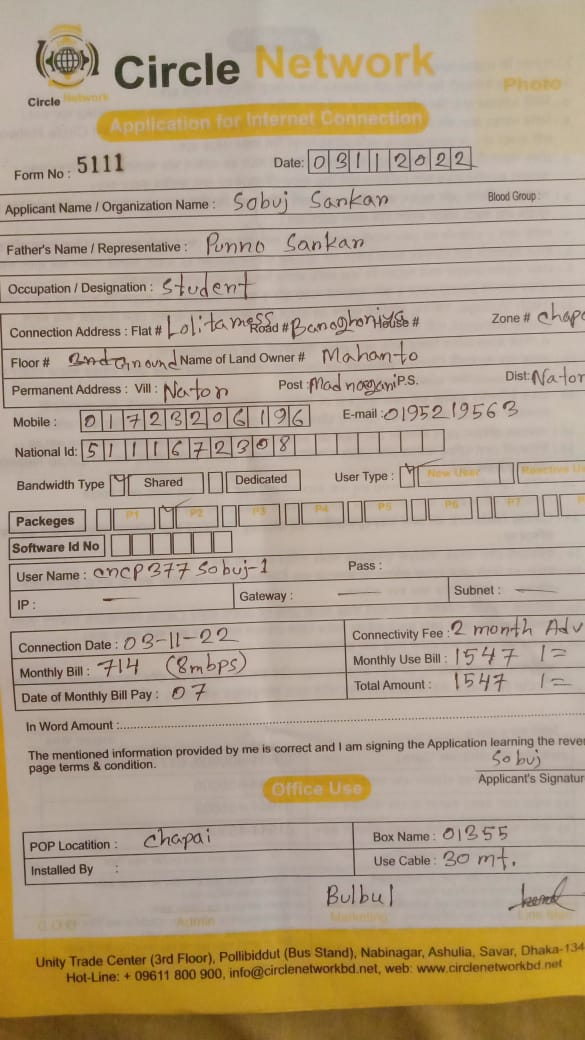 Circle Network
Circle Network
Photo
Application for Internet Connection
Form No : 5111 Date: 03112022
Applicant Name / Organization Name : Sobuj Sankan Blood Group :
Father's Name / Representative : Punno Sankan
Occupation / Designation : Student
Connection Address : Flat # Lolitamess Road # House # Zone # chapa
Floor # Name of Land Owner # Mahanto
Permanent Address : Vill : Naton Post : P.S. Dist: Nator
Mobile : 01723206196 E-mail : 0195219563
National Id: 5111672308
Bandwidth Type Shared Dedicated User Type : New User
Packeges P1 P2 P3 P4 P5 P6 P7 P
Software Id No
User Name : cncp377sobuj-1 Pass :
IP : — Gateway : — Subnet : —
Connection Date : 03-11-22 Connectivity Fee : 2 month Adv
Monthly Bill : 714 (8mbps) Monthly Use Bill : 1547 /=
Date of Monthly Bill Pay : 07 Total Amount : 1547 /=
In Word Amount :
The mentioned information provided by me is correct and I am signing the Application learning the reve
page terms & condition.
Sobuj
Applicant's Signatur
Office Use
POP Locatition : chapai Box Name : 01355
Installed By : Use Cable : 30 mt.
Bulbul
Admin Marketing Line Man
Unity Trade Center (3rd Floor), Pollibiddut (Bus Stand), Nabinagar, Ashulia, Savar, Dhaka-134
Hot-Line: + 09611 800 900, info@circlenetworkbd.net, web: www.circlenetworkbd.net